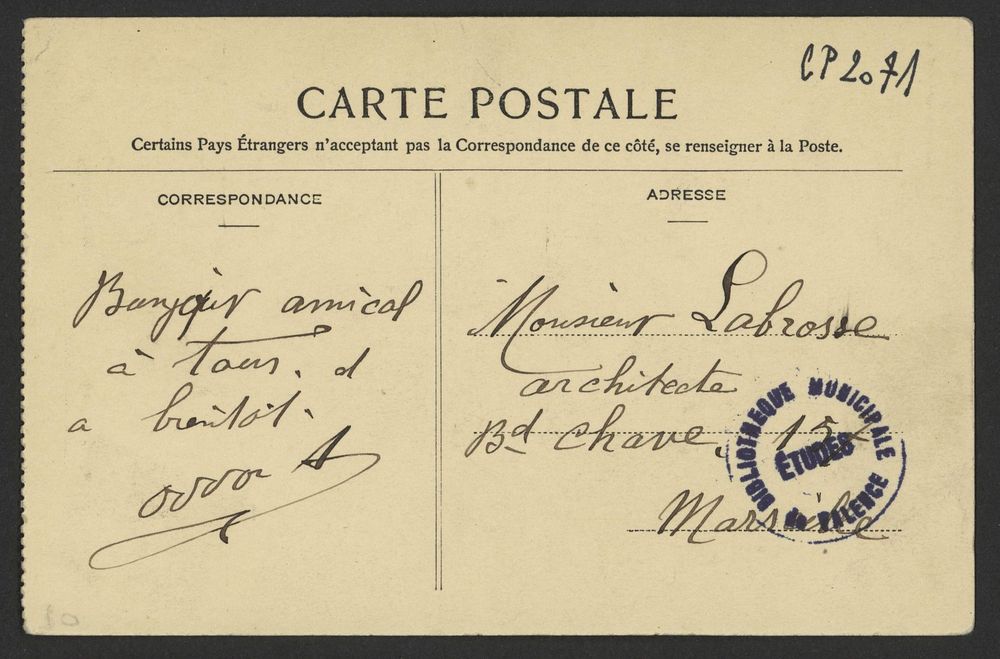 CP2071
CARTE POSTALE
Certains Pays Étrangers n'acceptant pas la Correspondance de ce côté, se renseigner à la Poste.
CORRESPONDANCE
Bonjour amical
à tous. et
a bientôt.
ADRESSE
Monsieur Labrosse
architecte
Bd Chave,
Marseille
BIBLIOTHEQUE MUNICIPALE
ÉTUDES
de VALENCE